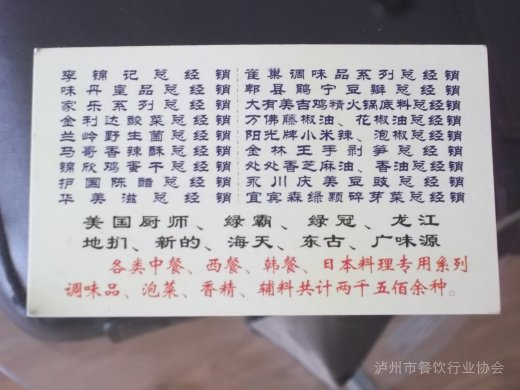 李锦记总经销 崔巢调味品系列总经销
味丹皇品总经销 郫县鹃宁豆瓣总经销
家乐系列总经销 大有美吉鸡精火锅底料总经销
金利达酸菜总经销 万佛藤椒油、花椒油总经销
兰岭野生菌总经销 阳光牌小米辣、泡椒总经销
马哥香辣酥总经销 金林王手剥笋总经销
锦欣鸡蛋干总经销 处处香芝麻油、香油总经销
护国陈醋总经销 永川庆美豆豉总经销
华美滋总经销 宜宾森绿颗碎芽菜总经销
美国厨师、绿霸、绿冠、龙江
地扪、新的、海天、东古、广味源
各类中餐、西餐、韩餐、日本料理专用系列
调味品、泡菜、香精、辅料共计两千五佰余种。
泸州市餐饮行业协会